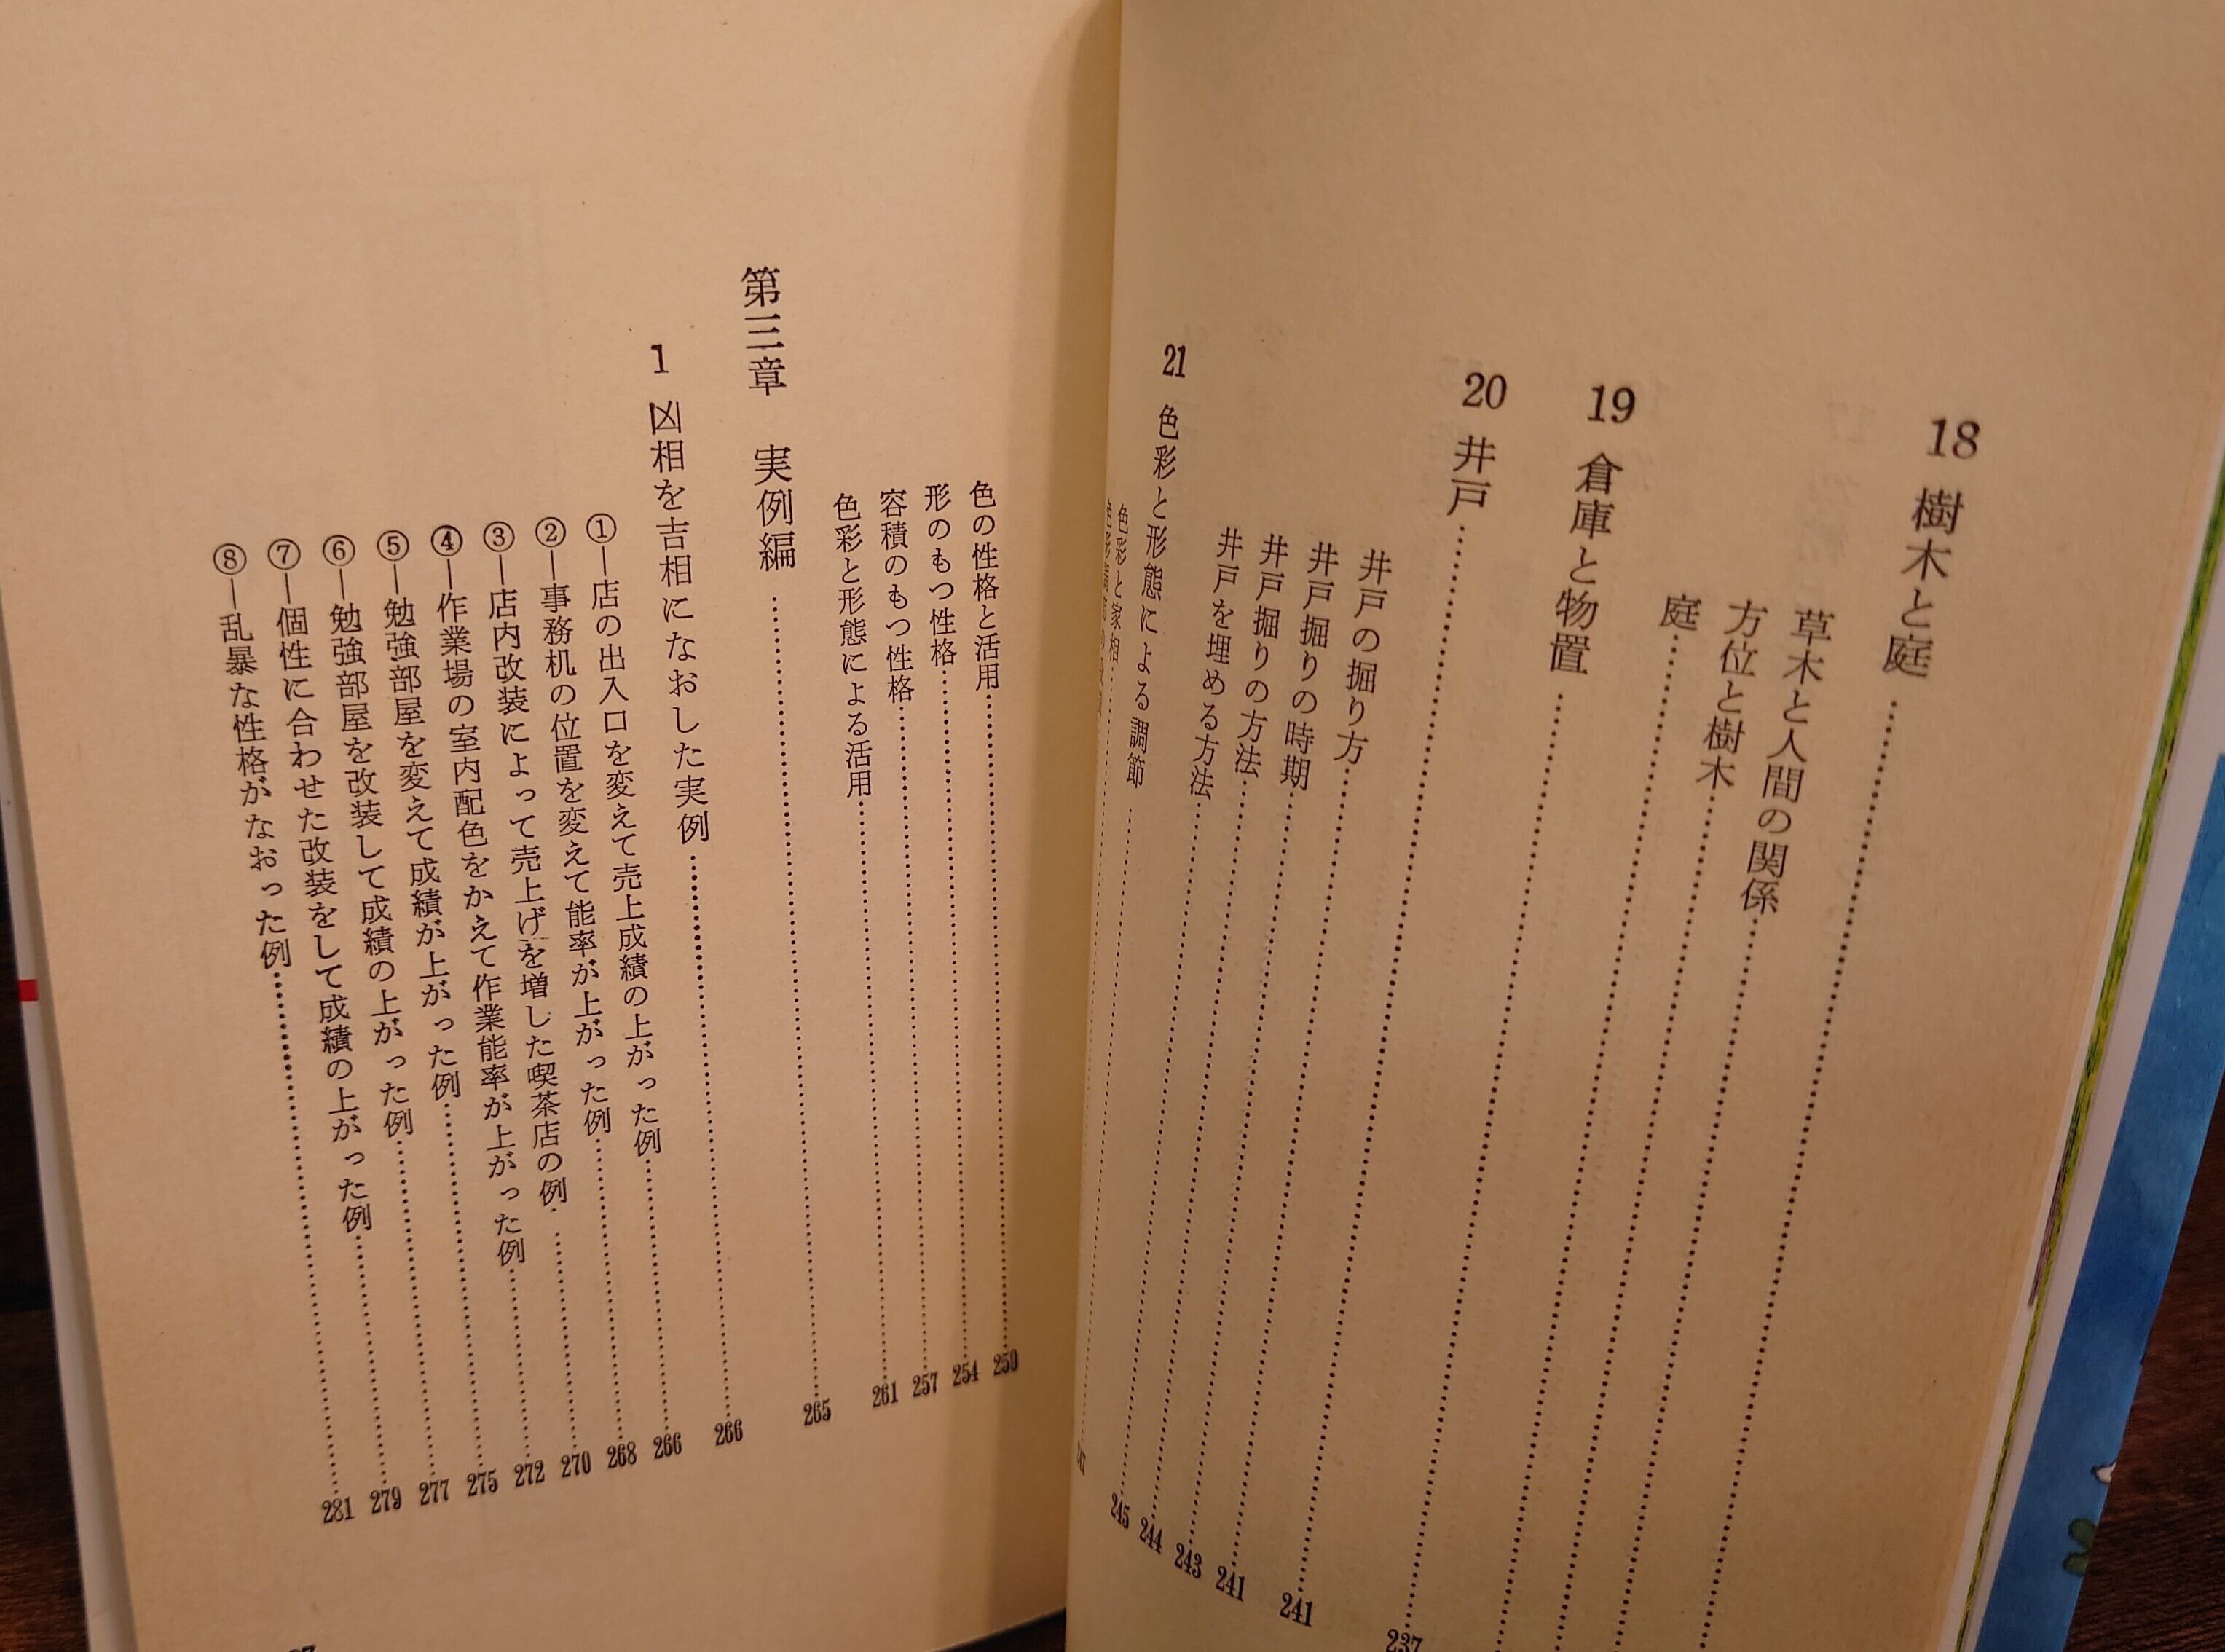 18 樹木と庭
草木と人間の関係
方位と樹木
庭
19 倉庫と物置 237
20 井戸 241
井戸の掘り方 241
井戸掘りの時期 243
井戸掘りの方法 244
井戸を埋める方法 245
21 色彩と形態による調節
色彩と家相
色の性格と活用 250
形のもつ性格 254
容積のもつ性格 257
色彩と形態による活用 261
第三章 実例編 265
1 凶相を吉相になおした実例 266
①―店の出入口を変えて売上成績の上がった例 266
②―事務机の位置を変えて能率が上がった例 268
③―店内改装によって売上げを増した喫茶店の例 270
④―作業場の室内配色をかえて作業能率が上がった例 272
⑤―勉強部屋を変えて成績が上がった例 275
⑥―勉強部屋を改装して成績の上がった例 277
⑦―個性に合わせた改装をして成績の上がった例 279
⑧―乱暴な性格がなおった例 281